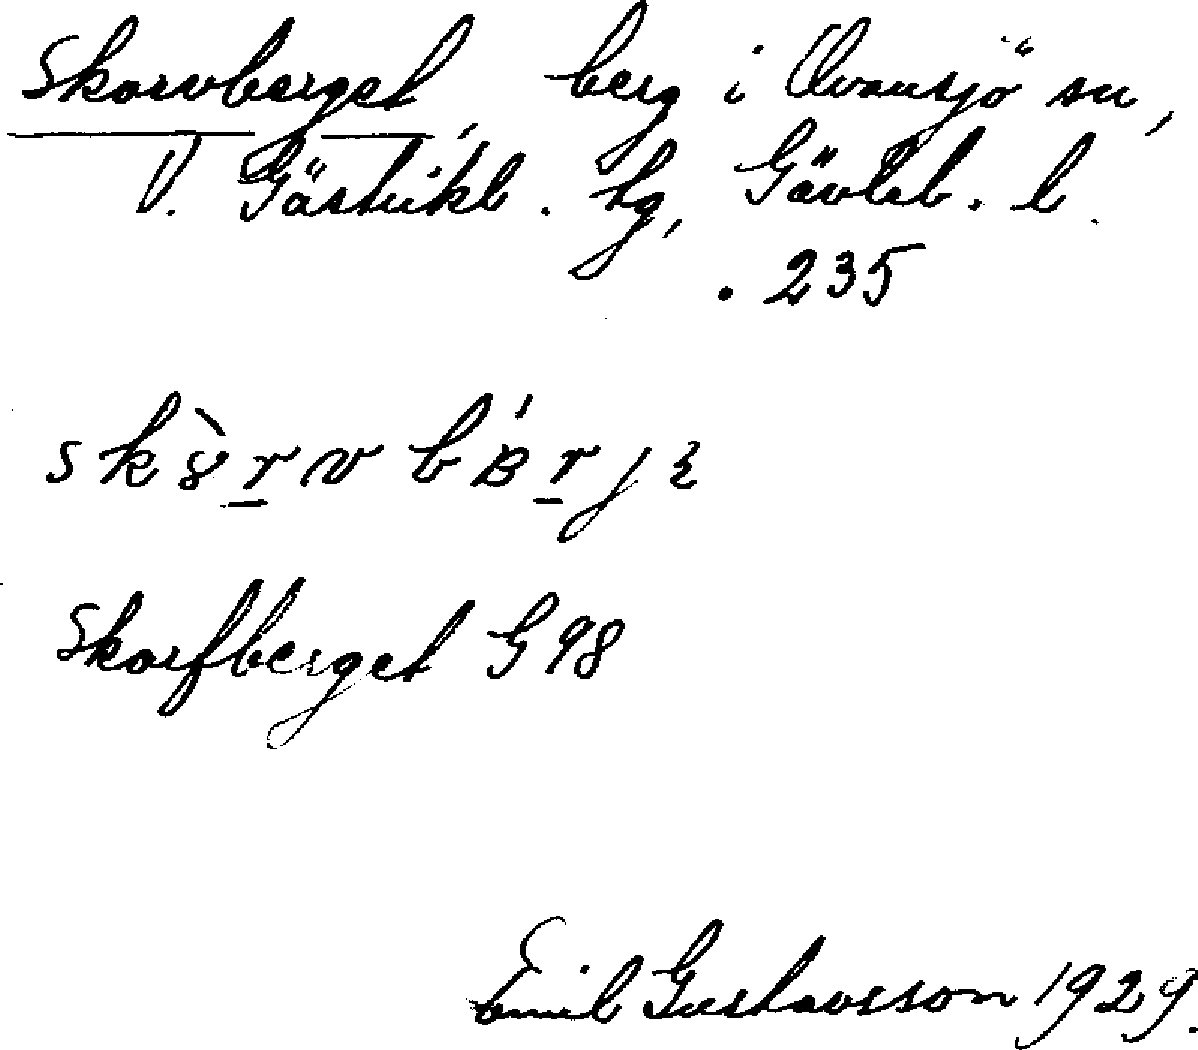 Skorvberget, berg i Ovansjö sn,
V. Gästrikl. tg, Gävleb. l.
. 235
Skorfberget G 98
Emil Gustavsson 1929.